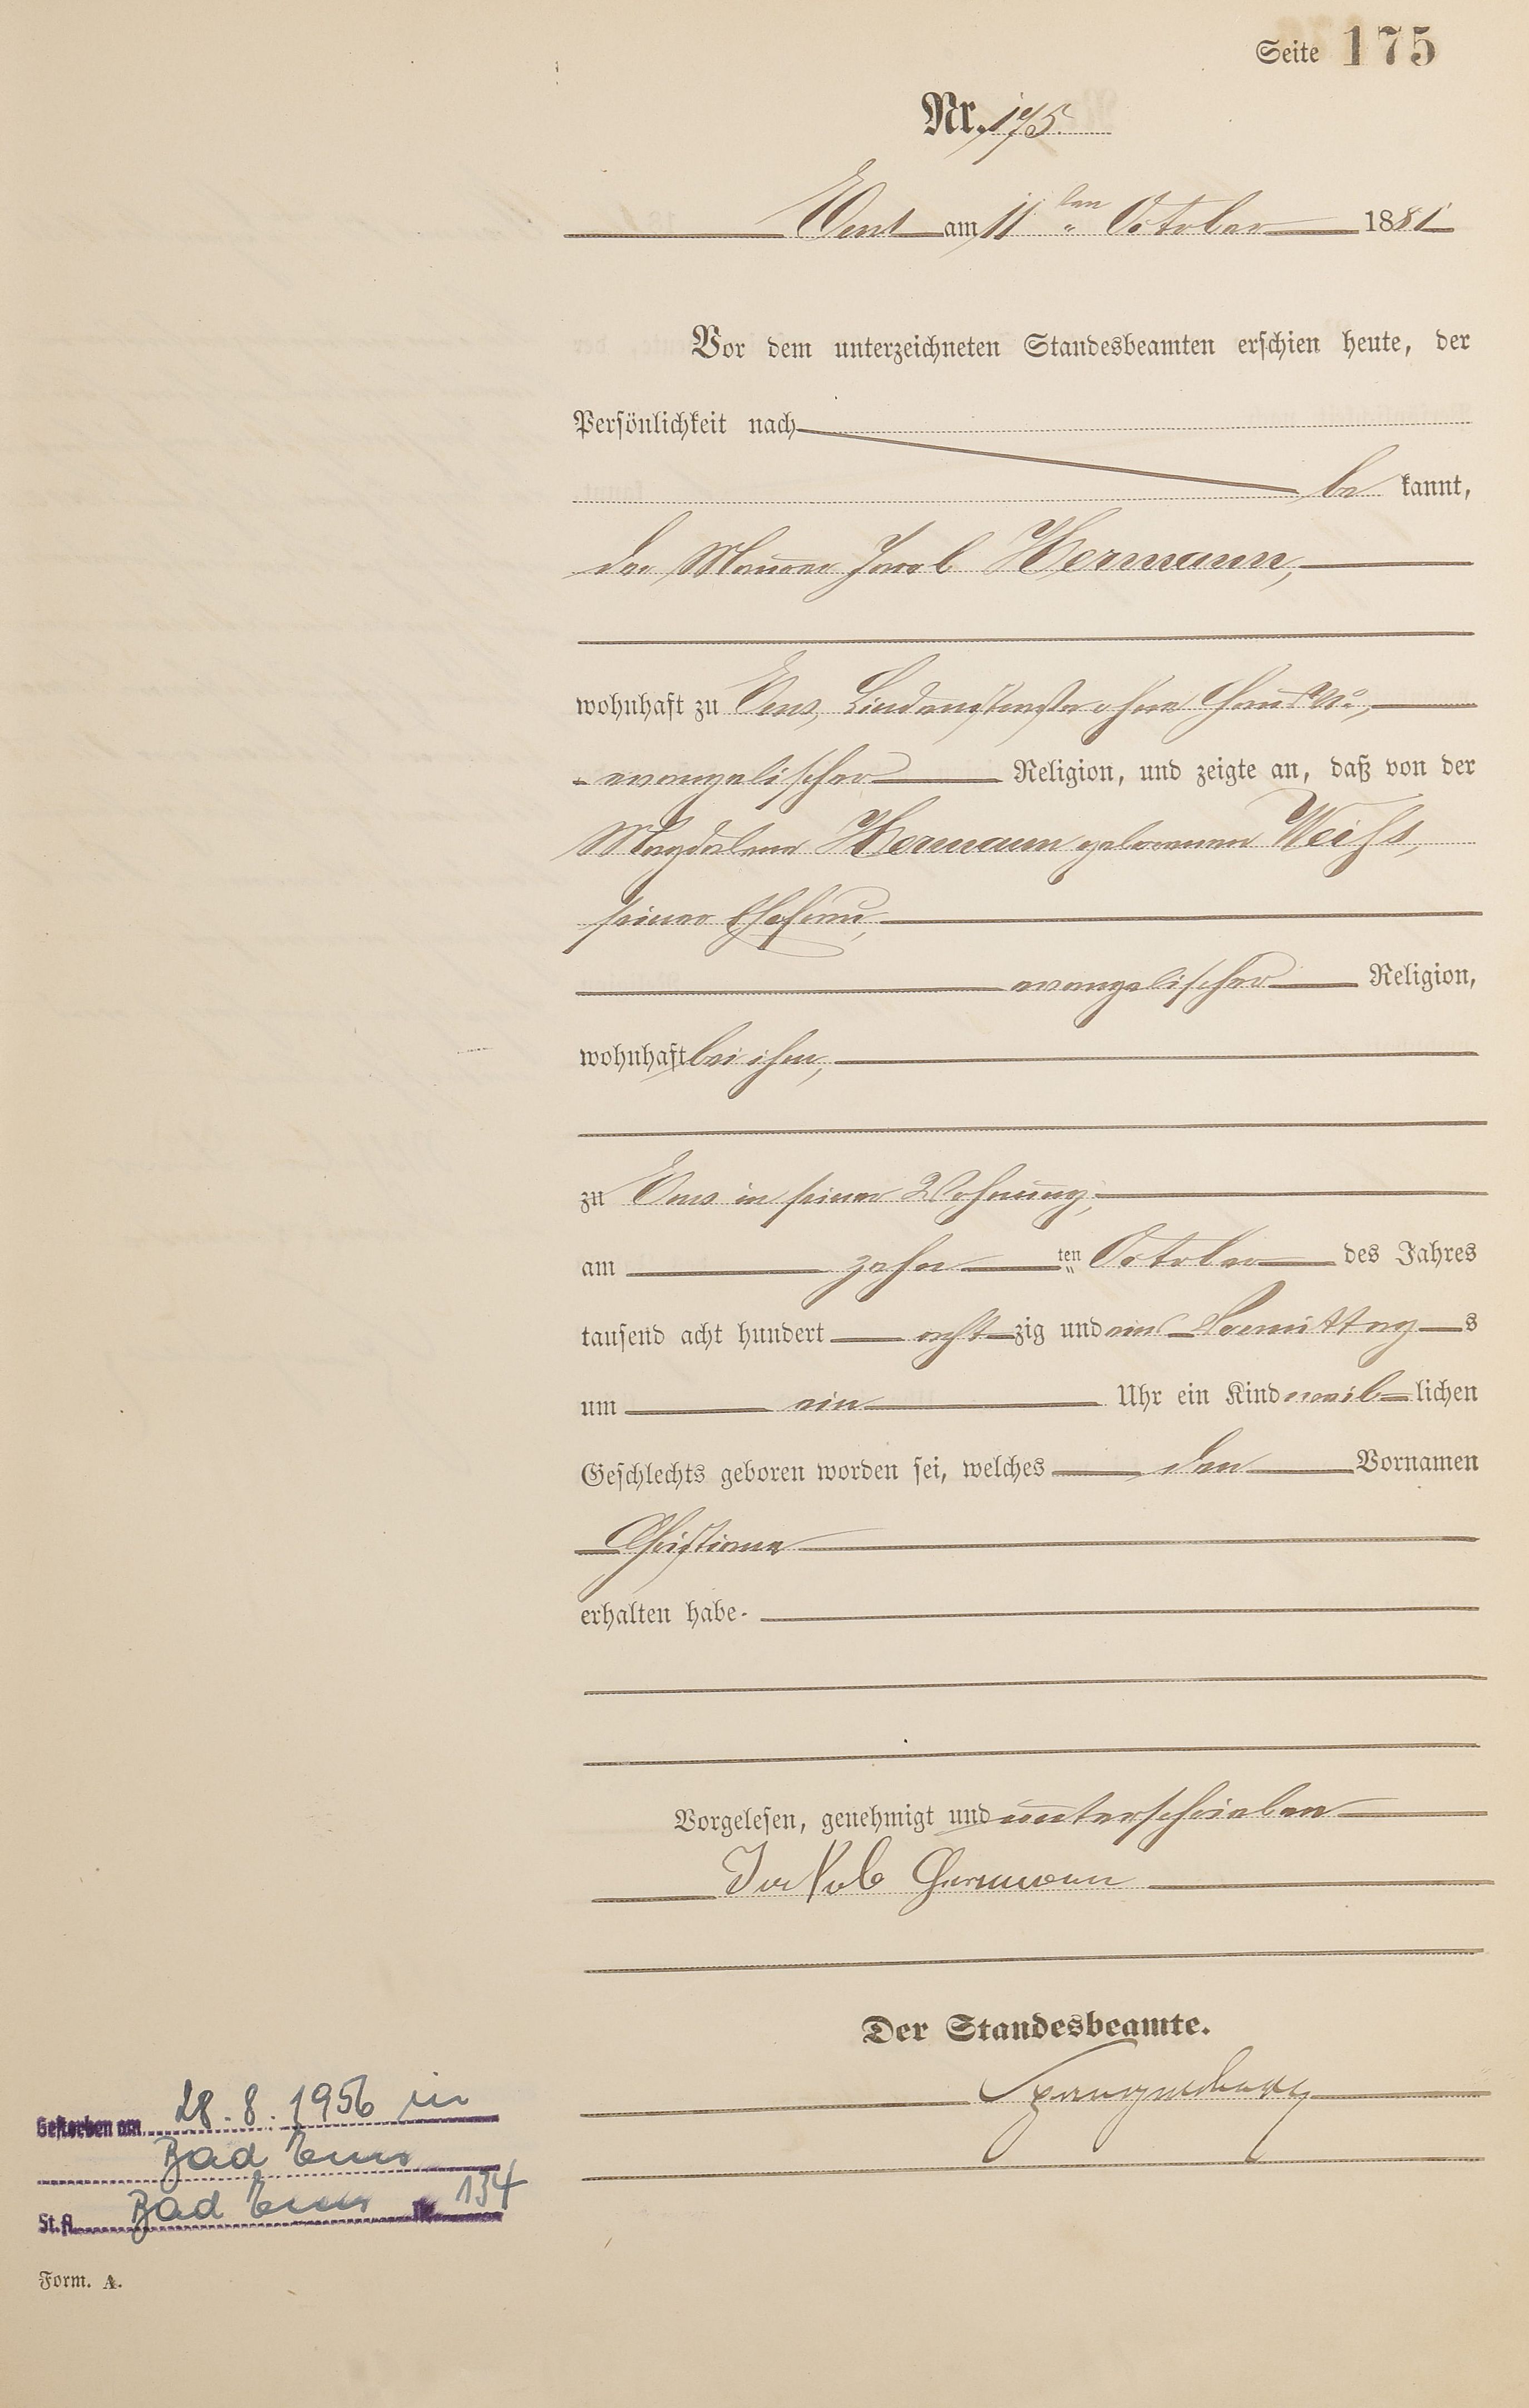 Seite 175
Nr. 175.
Ems am 11ten October 1881
Vor dem unterzeichneten Standesbeamten erschien heute, der
Persönlichkeit nach
be kannt,
der Maurer Jacob Hermann,
wohnhaft zu Ems, Lindenstraße ohne Haus No.,
evangelischer Religion, und zeigte an, daß von der
Magdalena Hermann geborenen Weiß,
seiner Ehefrau,
evangelischer Religion,
wohnhaft bei ihm,
zu Ems in seiner Wohnung,
am zehnten October des Jahres
tausend acht hundert achtzig und eins Vormittags
um ein Uhr ein Kind weiblichen
Geschlechts geboren worden sei, welches den Vornamen
Christiane
erhalten habe.
Vorgelesen, genehmigt und unterschrieben
Jakob Hermann
Der Standesbeamte.
Spangenberg
Gestorben am 28.8.1956 in
Bad Ems
St.A. Bad Ems Nr. 134
Form. A.